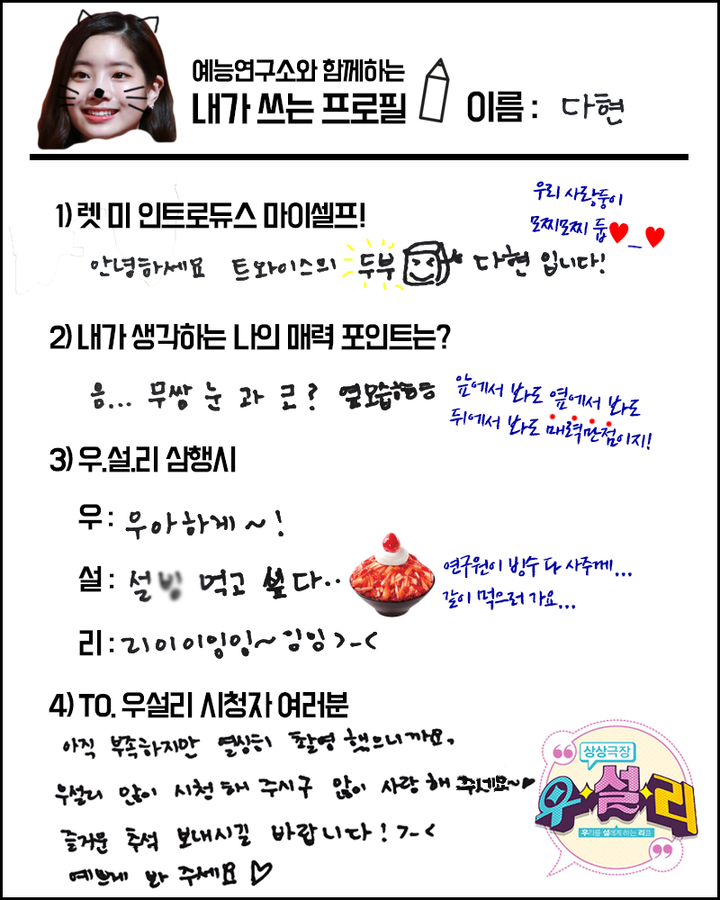 예능연구소와 함께하는
내가 쓰는 프로필
이름 : 다현
1) 렛 미 인트로듀스 마이셀프!
우리 사랑둥이
모찌모찌 둡♥_♥
안녕하세요 트와이스의 두부 다현 입니다!
2) 내가 생각하는 나의 매력 포인트는?
음... 무쌍 눈 과 끈? 옆모습ㅎㅎㅎ
앞에서 봐도 옆에서 봐도
뒤에서 봐도 매력만점이지!
3) 우.설.리 삼행시
우 : 우아하게 ~ !
설 : 설빙 먹고 싶다..
연구원이 빙수 다 사주께...
같이 먹으러 가요...
리 : 리이이잉잉~ 잉잉 >-<
4) TO. 우설리 시청자 여러분
아직 부족하지만 열심히 촬영 했으니까요,
우설리 많이 시청해 주시구 많이 사랑해 주세요~♥
즐거운 추석 보내시길 바랍니다! >-<
예쁘게 봐 주세요 ♡
상상극장
우설리
우리를 설레게 하는 리플